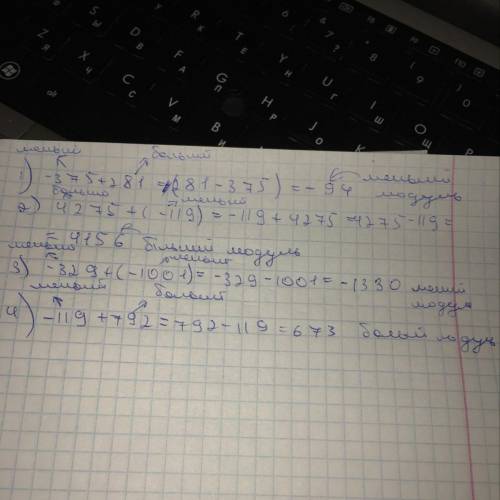 меньший больший
1) -375+281 = (281-375) = -94 меньший модуль
больший меньший
2) 4275+(-119) = -119+4275=4275-119=
= 4156 більший модуль
меньший меньший
3) -329+(-1001) = -329-1001 = -1330 меньший модуль
меньший больший
4) -119+792=792-119=673 больший модуль